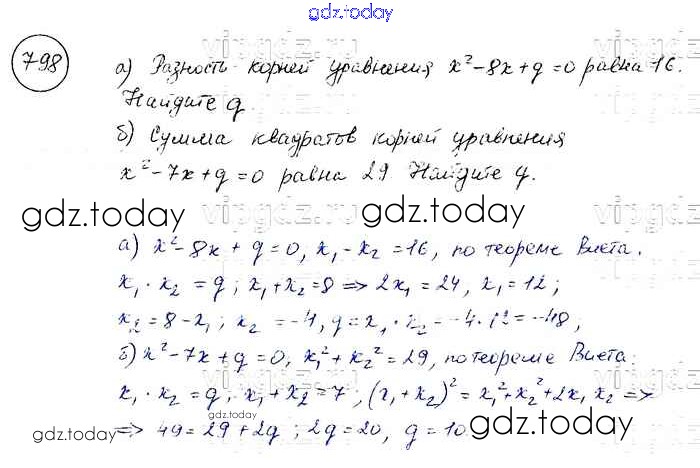 gdz.today
798
а) Разность корней уравнения x²-8x+q=0 равна 16.
Найдите q.
б) Сумма квадратов корней уравнения
x²-7x+q=0 равна 29. Найдите q.
gdz.today gdz.today
а) x²-8x+q=0, x₁-x₂=16, по теореме Виета.
x₁·x₂=q; x₁+x₂=8 => 2x₁=24, x₁=12;
x₂=8-x₁; x₂=-4, q=x₁·x₂=-4·12=-48;
б) x²-7x+q=0, x₁²+x₂²=29, по теореме Виета:
x₁·x₂=q; x₁+x₂=7; (x₁+x₂)²=x₁²+x₂²+2x₁x₂ =>
=> 49=29+2q; 2q=20, q=10.
gdz.today gdz.today